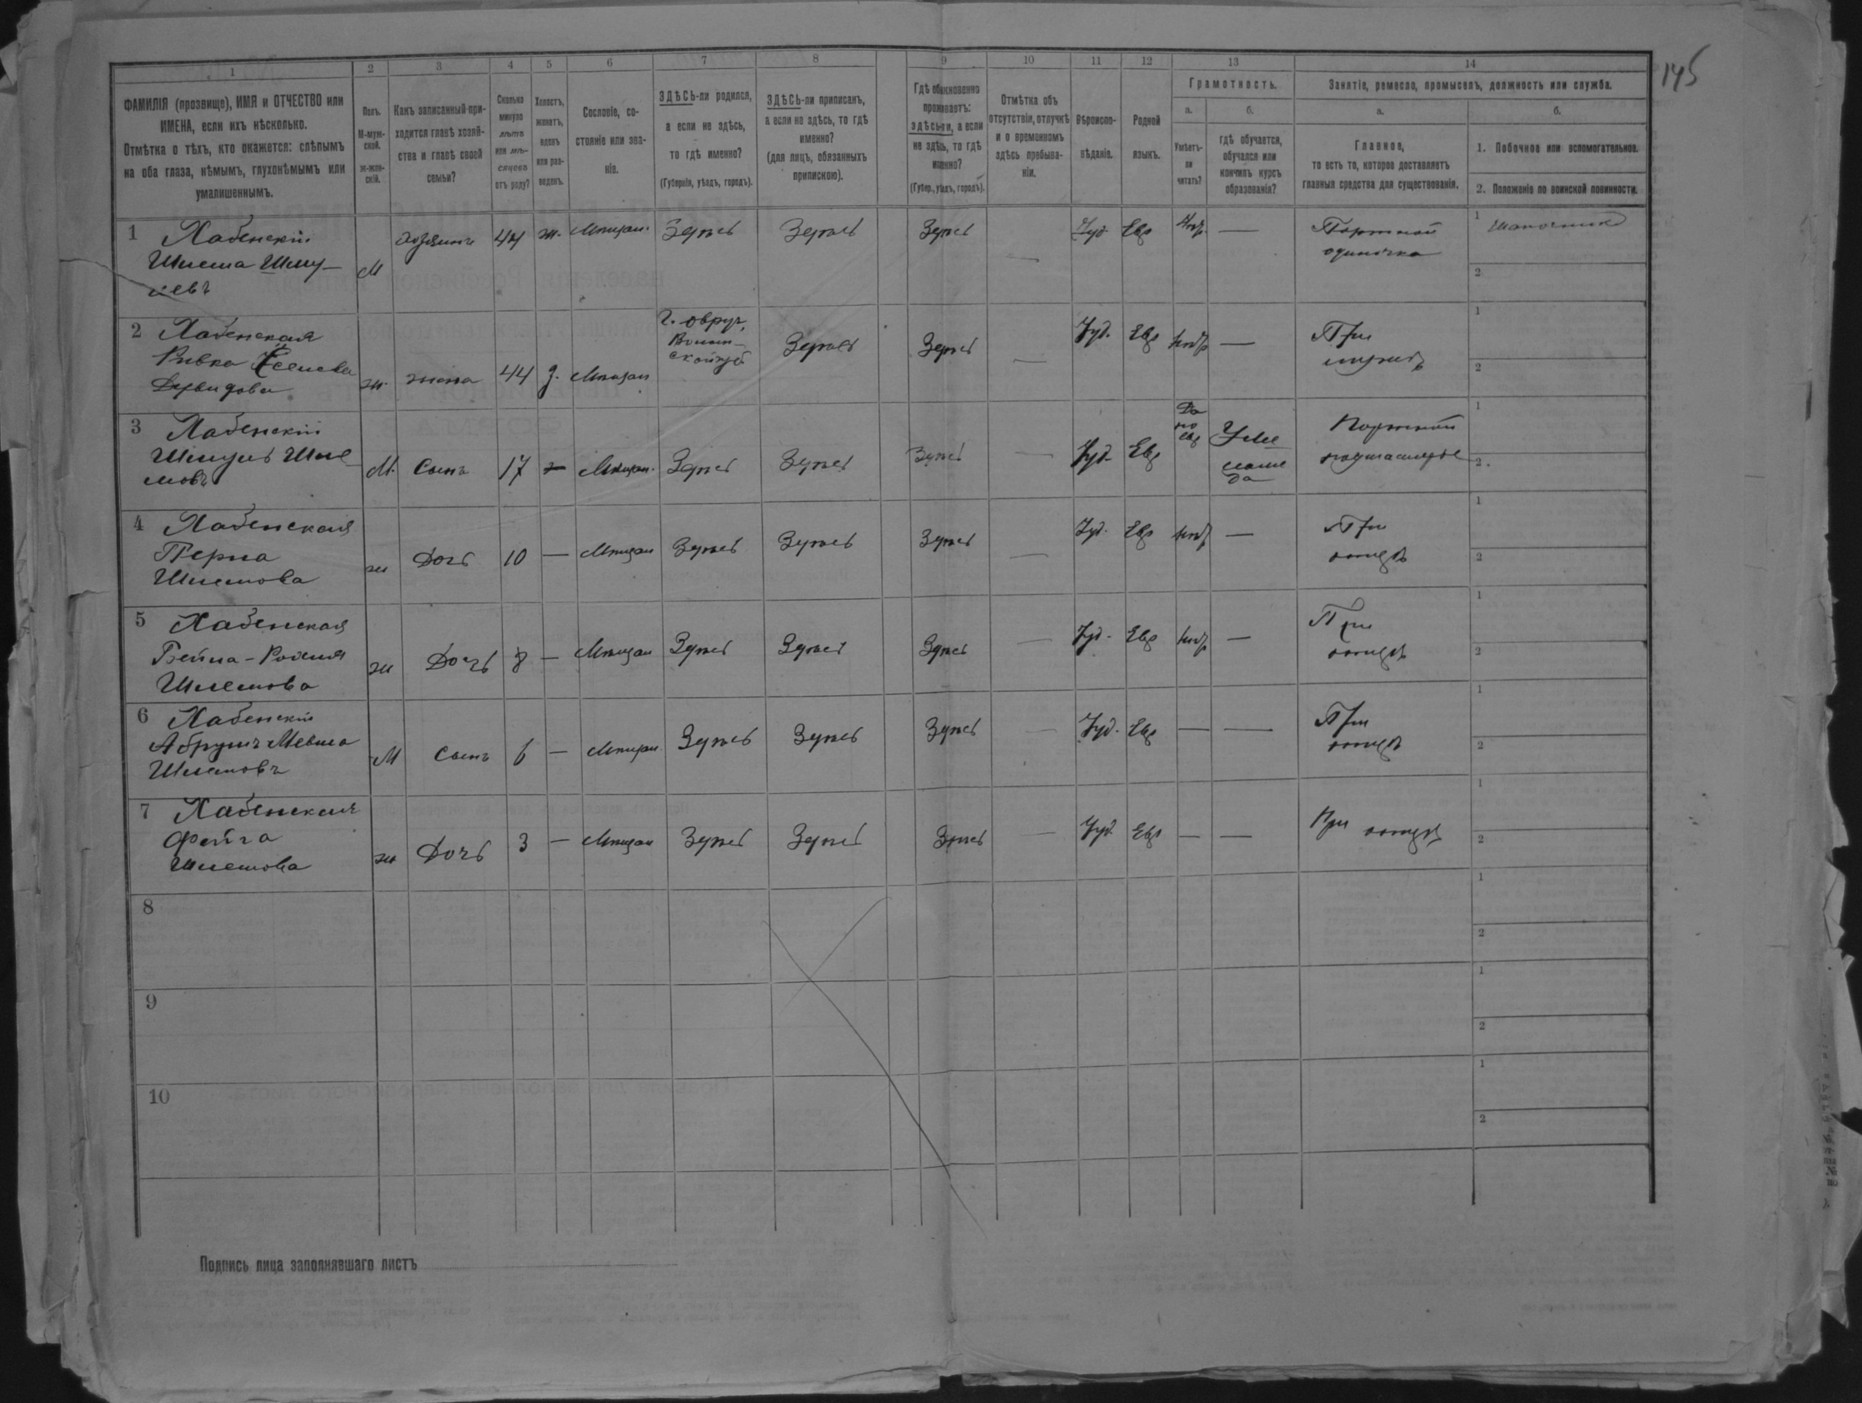 145
1
2
3
4
5
6
7
8
9
10
11
12
13
14
ФАМИЛІЯ (прозвище), ИМЯ и ОТЧЕСТВО или
ИМЕНА, если ихъ нѣсколько.
Отмѣтка о тѣхъ, кто окажется: слѣпымъ
на оба глаза, нѣмымъ, глухонѣмымъ или
умалишеннымъ.
Полъ.
М-муж-
ской.
Ж-жен-
скій.
Какъ записанный при-
ходится главѣ хозяй-
ства и главѣ своей
семьи?
Сколько
минуло
лѣтъ
или мѣ-
сяцевъ
отъ роду?
Холостъ,
женатъ,
вдовъ
или раз-
веденъ.
Сословіе, со-
стояніе или зва-
ніе.
ЗДѢСЬ-ли родился,
а если не здѣсь,
то гдѣ именно?
(Губернія, уѣздъ, городъ).
ЗДѢСЬ-ли приписанъ,
а если не здѣсь, то гдѣ
именно?
(для лицъ, обязанныхъ
припискою).
Гдѣ обыкновенно
проживаетъ:
здѣсь-ли, а если
не здѣсь, то гдѣ
именно?
(Губер., уѣздъ, городъ).
Отмѣтка объ
отсутствіи, отлучкѣ
и о временномъ
здѣсь пребыва-
ніи.
Вѣроиспо-
вѣданіе.
Родной
языкъ.
Грамотность.
а.
Умѣетъ-
ли
читать?
б.
гдѣ обучается,
обучался или
кончилъ курсъ
образованія?
Занятіе, ремесло, промыселъ, должность или служба.
а.
Главное,
то есть то, которое доставляетъ
главныя средства для существованія.
б.
1. Побочное или вспомогательное.
2. Положеніе по воинской повинности.
1 Хабенскій
Шлема Шму-
левъ
М
хозяинъ
44
ж.
Мѣщан.
Здѣсь
Здѣсь
Здѣсь
—
Іуд.
Евр
Нѣтъ
—
Портной
одиночка
1 Шапочникъ
2
2 Хабенская
Ривка
Дувидова
ж.
жена
44
з.
Мѣщан
г. Овруч,
Волын-
ской губ
Здѣсь
Здѣсь
—
Іуд.
Евр
нѣтъ
—
При
мужѣ
1
2
3 Хабенскій
Шмуль Шле
мовъ
М.
Сынъ
17
Мѣщан.
Здѣсь
Здѣсь
Здѣсь
—
Іуд.
Евр
Да
по
евр
Портной
подмастерье
1
2.
4 Хабенская
Перла
Шлемова
ж
Дочь
10
—
Мѣщан
Здѣсь
Здѣсь
Здѣсь
—
Іуд.
Евр
нѣтъ
—
При
отцѣ
1
2
5 Хабенская
Бейла-Рохля
Шлемова
ж
Дочь
8
—
Мѣщан
Здѣсь
Здѣсь
Здѣсь
—
Іуд.
Евр
нѣтъ
—
При
отцѣ
1
2
6 Хабенскій
Абрумъ
Шлемовъ
М
Сынъ
6
—
Мѣщан
Здѣсь
Здѣсь
Здѣсь
—
Іуд.
Евр
—
—
При
отцѣ
1
2
7 Хабенская
Фейга
Шлемова
ж
Дочь
3
—
Мѣщан
Здѣсь
Здѣсь
Здѣсь
—
Іуд
Евр
—
—
При отцѣ
1
2
8
1
2
9
1
2
10
1
2
Подпись лица заполнявшаго листъ